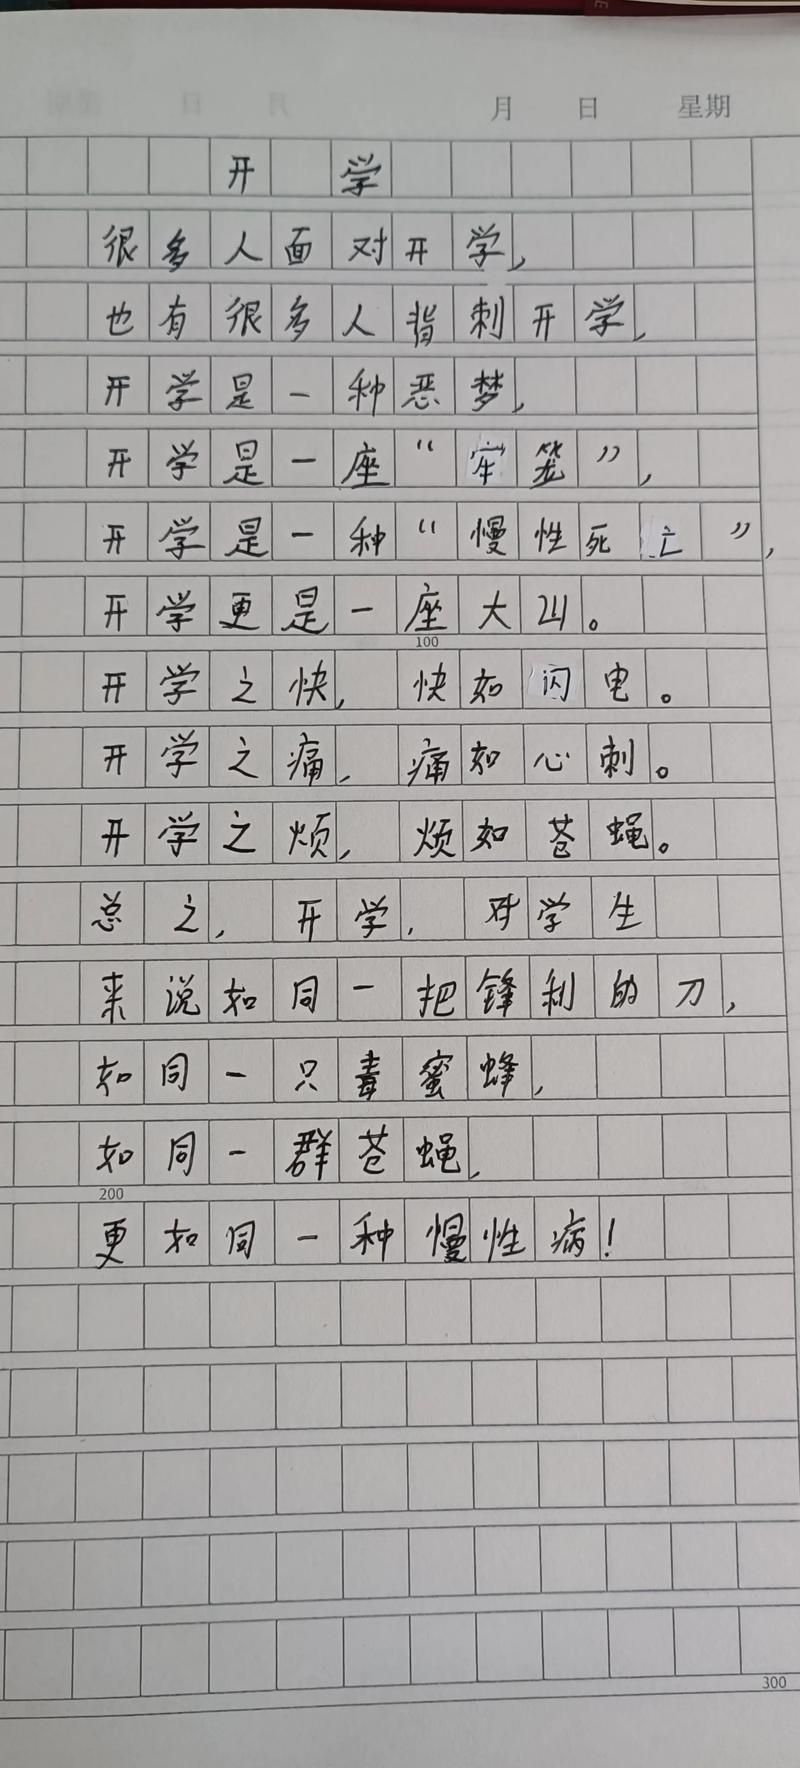 月 日 星期
开学
很多人面对开学,
也有很多人背刺开学,
开学是一种恶梦,
开学是一座“牢笼”,
开学是一种“慢性死亡”,
开学更是一座大山。
100
开学之快, 快如闪电。
开学之痛, 痛如心刺。
开学之烦, 烦如苍蝇。
总之, 开学, 对学生
来说如同一把锋利的刀,
如同一只毒蜜蜂,
如同一群苍蝇,
200
更如同一种慢性病!
300